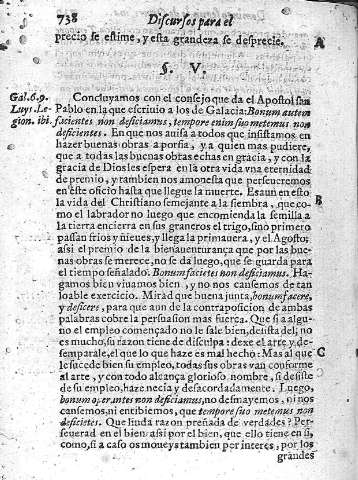 738 Discursos para el
precio se estime, y esta grandeza se desprecie.
A
§. V.
Gal.6.9.
Luys.Le-
gion. ibi.
Concluyamos con el consejo que da el Apostol san
Pablo en la que escriuio a los de Galacia: Bonum autem
facientes non deficiamus, tempore enim suo metemus non
deficientes. En que nos auisa a todos que insistamos en
hazer buenas obras a porfia, y a quien mas pudiere,
que a todas las buenas obras echas en gracia, y con la
gracia de Dios les espera en la otra vida vna eternidad
de premio, y tambien nos amonesta que perseueremos
en este oficio hasta que llegue la muerte. Es aun en esto
B
la vida del Christiano semejante a la siembra, que co-
mo el labrador no luego que encomienda la semilla a
la tierra encierra en sus graneros el trigo, sino primero
passan frios y nieues, y llega la primauera, y el Agosto;
assi el premio de la bienauenturança que por las bue-
nas obras se merece, no se da luego, que se guarda para
el tiempo señalado. Bonum facietes non deficiamus. Ha-
gamos bien viuamos bien, y no nos cansemos de tan
loable exercicio. Mirad que buena junta, bonum facere,
y deficere, para que aun de la contraposicion de ambas
palabras cobre la persuasion mas fuerça. Que si a algu-
no el empleo começado no le sale bien, desista del; no
es mucho, su razon tiene de disculpa: dexe el arte y de-
C
semparale, el que lo que haze es mal hecho: Mas al que
le sucede bien su empleo, todas sus obras van conforme
al arte, y con todo alcança glorioso nombre, si desiste
de su empleo, haze necia y desacordadamente. Luego,
bonum operantes non deficiamus, no desmayemos, ni nos
cansemos, ni entibiemos, que tempore suo metemus non
deficietes. Que linda razon preñada de verdades? Per-
seuerad en el bien assi por el bien, que ello tiene en si,
como, si a caso os mouey s tambien por interes, por los
grandes